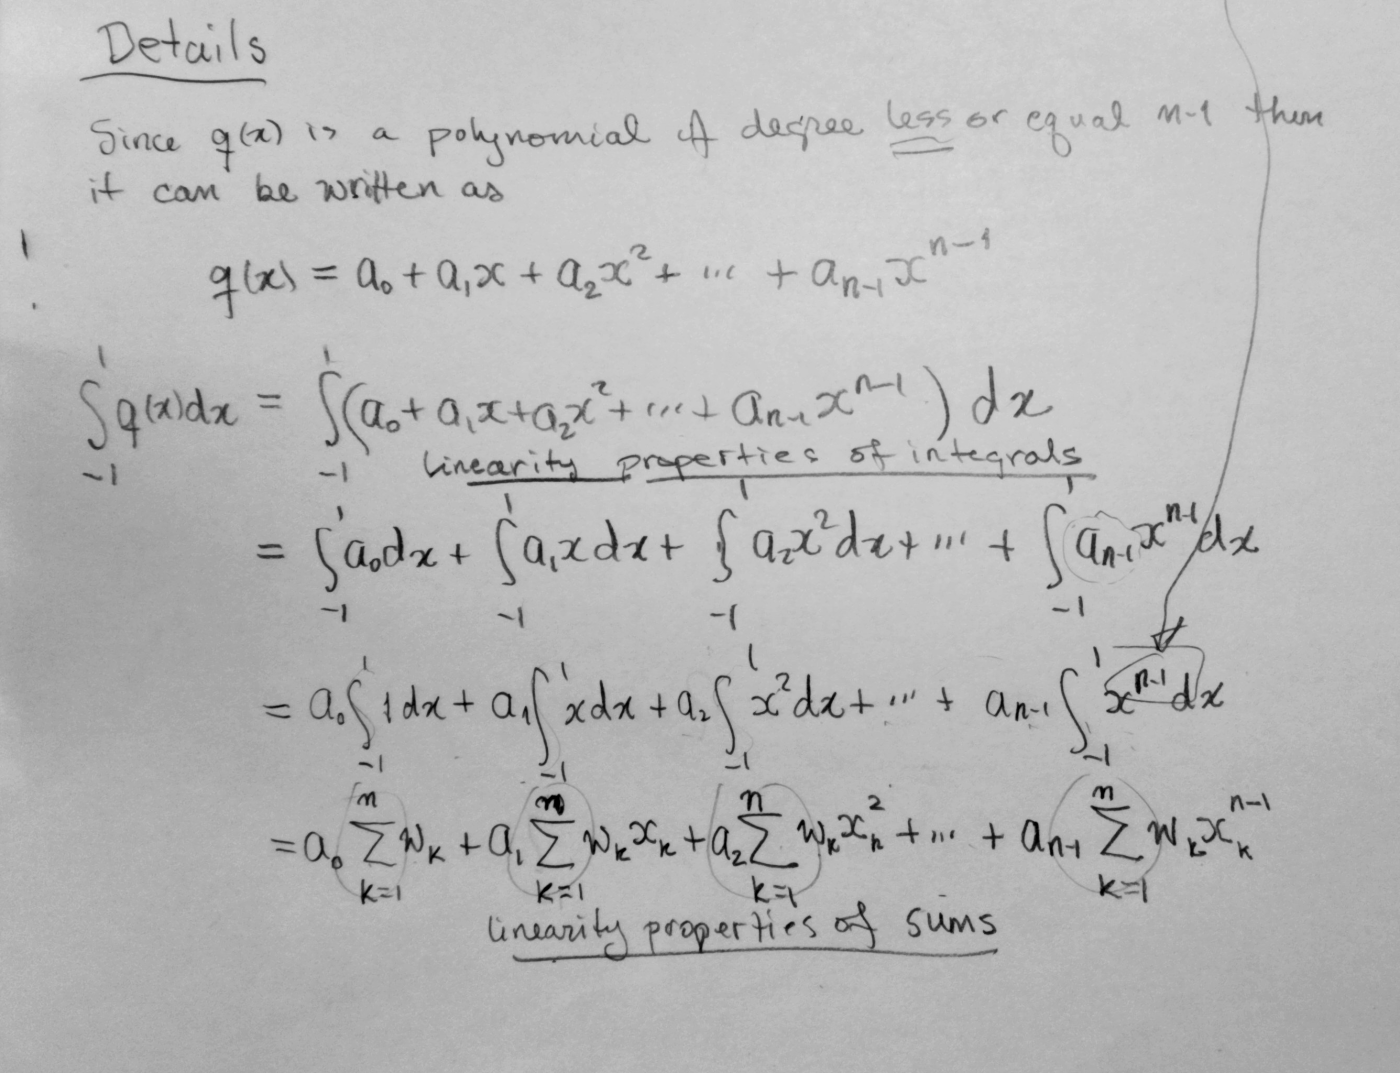 Details
Since q(x) is a polynomial of degree less or equal n-1 then
it can be written as
q(x) = a₀ + a₁x + a₂x² + ... + aₙ₋₁xⁿ⁻¹
∫₋₁¹ q(x)dx = ∫₋₁¹ (a₀ + a₁x + a₂x² + ... + aₙ₋₁xⁿ⁻¹) dx
linearity properties of integrals
= ∫₋₁¹ a₀dx + ∫₋₁¹ a₁x dx + ∫₋₁¹ a₂x²dx + ... + ∫₋₁¹ aₙ₋₁xⁿ⁻¹dx
= a₀∫₋₁¹ 1dx + a₁∫₋₁¹ xdx + a₂∫₋₁¹ x²dx + ... + aₙ₋₁∫₋₁¹ xⁿ⁻¹dx
= a₀ ∑ₖ₌₁ⁿ wₖ + a₁ ∑ₖ₌₁ⁿ wₖxₖ + a₂ ∑ₖ₌₁ⁿ wₖxₖ² + ... + aₙ₋₁ ∑ₖ₌₁ⁿ wₖxₖⁿ⁻¹
linearity properties of sums